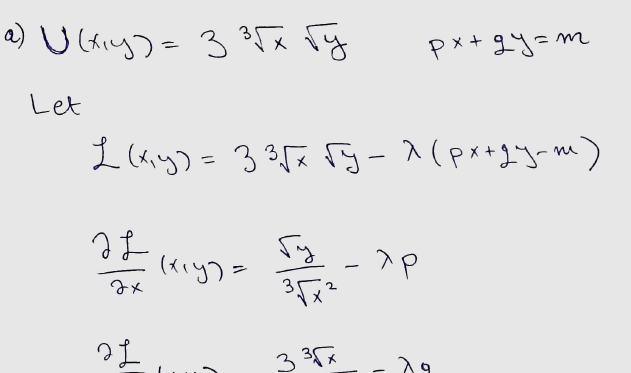 a) U(x,y) = 3 ∛x √y px + qy = m
Let
ℒ(x,y) = 3 ∛x √y − λ(px + qy − m)
∂ℒ/∂x (x,y) = √y / ∛x² − λp
∂ℒ 3 ∛x − λq